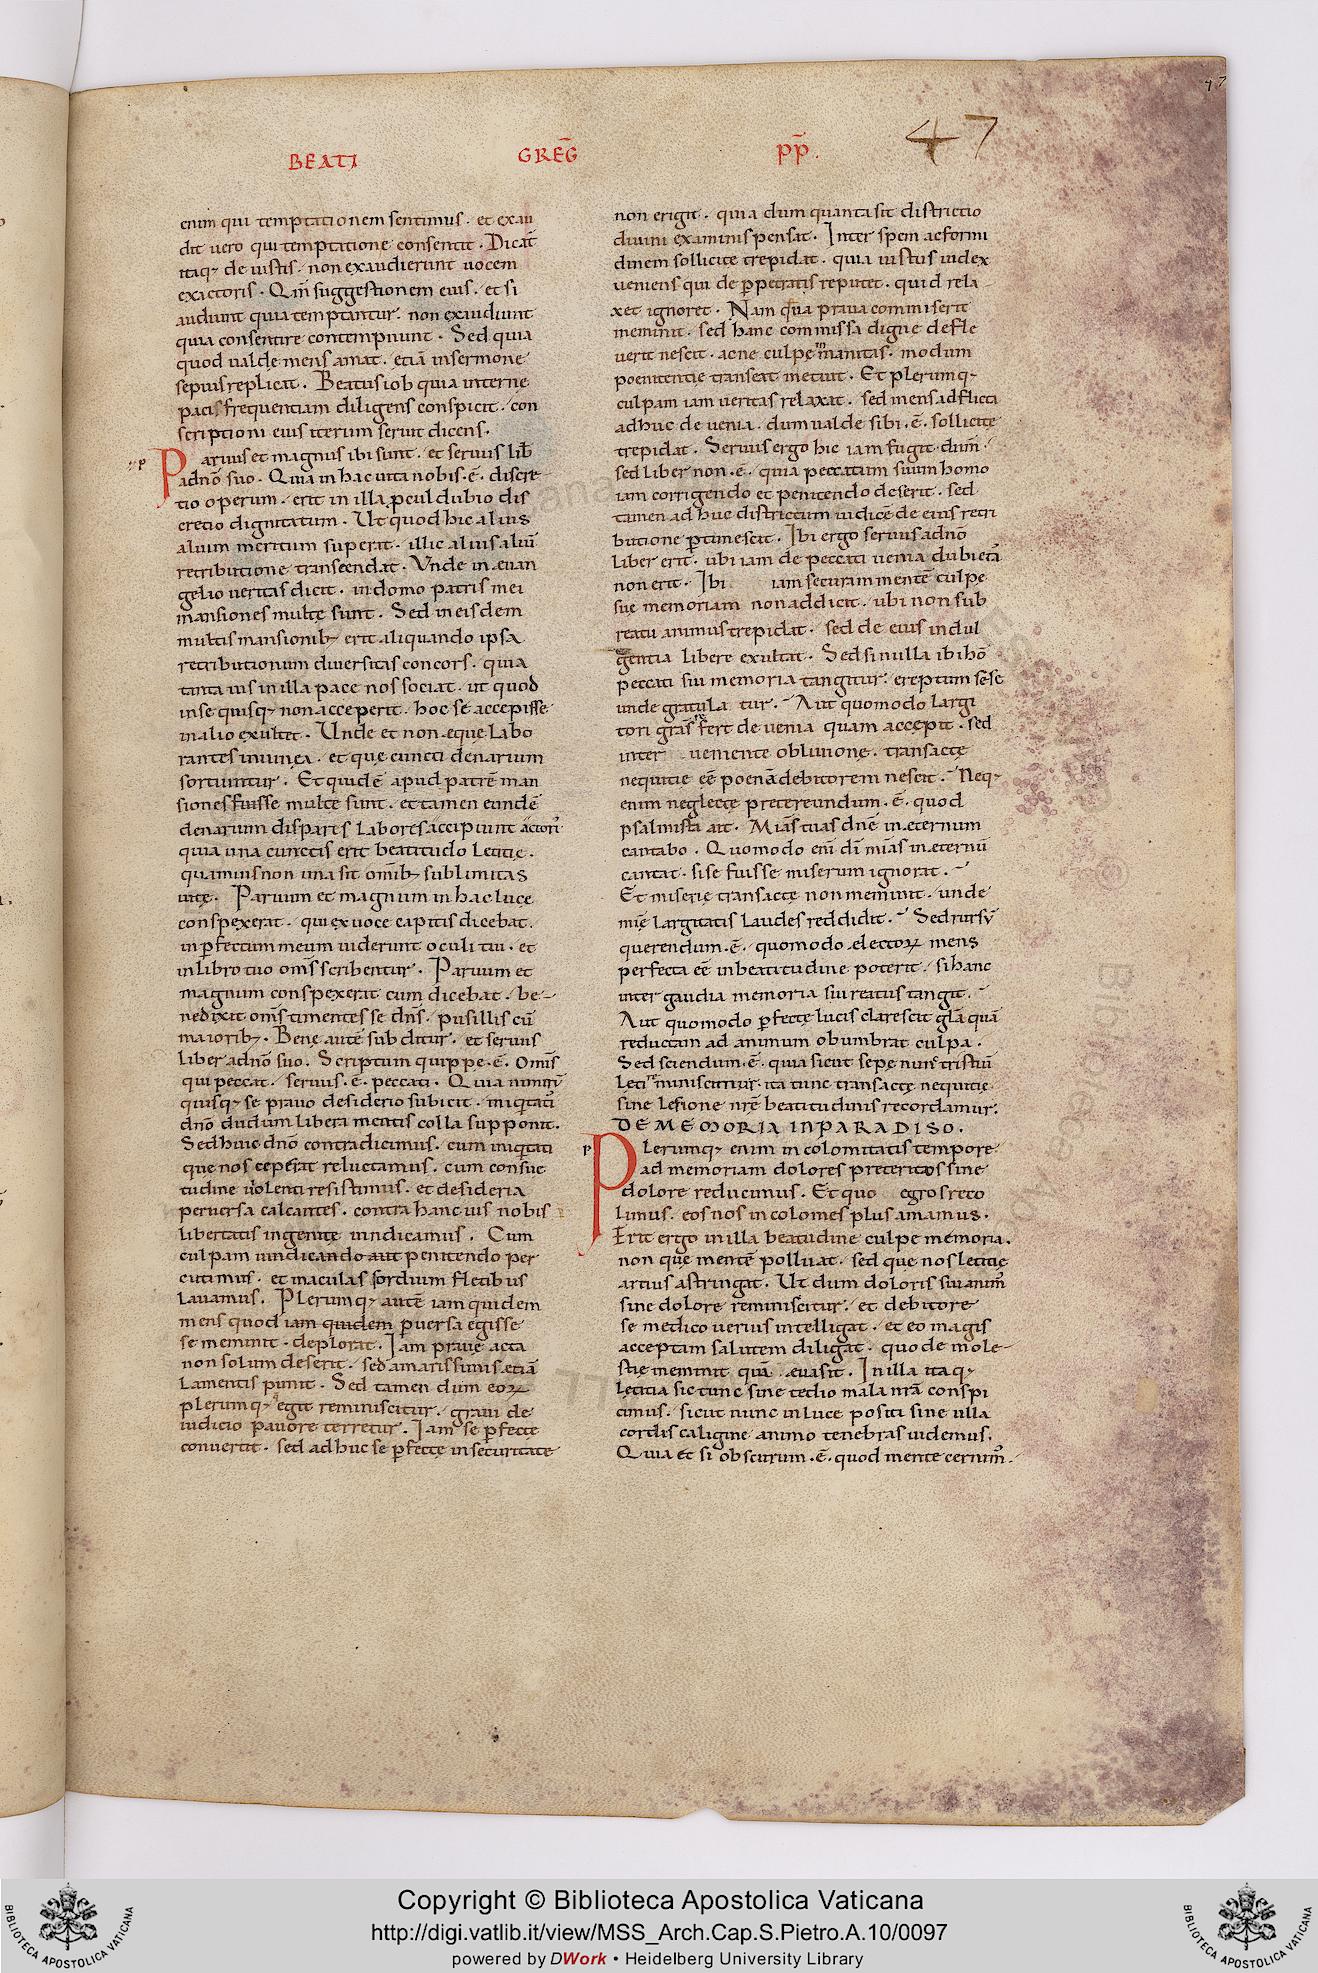 47
BEATI GREḠ PP̄.
47
enim qui temptationem sentimus. et exau
dit uero qui temptatione consentit. Dicat̄
itaq; de iustis. non exaudierunt uocem
exactoris. Qm̄ suggestionem eius. et si
audiunt quia temptantur. non exaudiunt
quia consentire contempnunt. Sed quia
quod ualde mens amat. etiā in sermone
sepius replicat. Beatus iob quia interne
pacis frequentiam diligens conspicit. con
scriptioni eius iterum seruit dicens.
Paruus et magnus ibi sunt. et seruus lib̄
a dn̄o suo. Quia in hac uita nobis .ē. discre-
tio operum. erit in illa procul dubio dis
cretio dignitatum. Ut quod hic alius
alium meritum superat. illic alius aliū
retributione transcendat. Unde in euan
gelio ueritas dicit. in domo patris mei
mansiones multę sunt. Sed in eisdem
multis mansionib; erit aliquando ipsa
retributionum diuersitas concors. quia
tanta uis in illa pace nos sociat. ut quod
in se quisq; non acceperit. hoc se accepisse
in alio exultet. Unde et non eque labo
rantes in uinea. et que cuncti denarium
sortiuntur. Et quidē apud patrē man
siones fuisse multe sunt. et tamen eundē
denarium dispares labores accipiunt
quia una cunctis erit beatitudo letitię.
quamuis non una sit omīb; sublimitas
uitę. Paruum et magnum in hac luce
conspexerat. qui ex uoce capitis dicebat.
inp̄fectum meum uiderunt oculi tui. et
in libro tuo om̄s scribentur. Paruum et
magnum conspexerat cum dicebat. be-
nedixit om̄s timentes se dn̄s. pusillis cū
maiorib;. Bene autē subditur. et seruus
liber a dn̄o suo. Scriptum quippe .ē. Omīs
qui peccat. seruus .ē. peccati. Quia nimirū
quisq; se prauo desiderio subicit. iniquitati
dn̄o dudum libera mentis colla supponit.
Sed huic dn̄o contradicimus. cum iniquitati
que nos ceperat reluctamus. cum consue
tudine uiolenti resistimus. et desideria
peruersa calcantes. contra hanc ius nobis
libertatis ingenite uindicamus. Cum
culpam uindicando aut penitendo per
cutimus. et maculas sordium fletibus
lauamus. Plerumq; autē iam quidem
mens quod iam quidem puersa egisse
se meminit. deplorat. Iam praue acta
non solum deserit. sed amarissimis etiā
lamentis punit. Sed tamen dum eorum
plerumq; egit reminiscitur. graui de
iudicio pauore terretur. Iam se p̄fecte
conuertit. sed adhuc se p̄fectę in securitate
non erigit. quia dum quanta sit districtio
diuini examinis pensat. Inter spem ac formi
dinem sollicite trepidat. quia iustus iudex
ueniens qui de p̄petratis reputet. quid rela
xet ignoret. Nam qua praua commiserit
meminit. sed hanc commissa digne defle
uerit nescit. ac ne culpe inmanitas. modum
poenitentie transeat metuit. Et plerumq;
culpam iam ueritas relaxat. sed mens adflicta
adhuc de uenia. dum ualde sibi .ē. sollicite
trepidat. Seruus ergo hic iam fugit dum̄.
sed liber non .ē. quia peccatum suum homo
iam corrigendo et penitendo deserit. sed
tamen adhuc districtum iudicē de eius retri
butione p̄timescit. Ibi ergo seruus a dn̄o
liber erit. ubi iam de peccati uenia dubietas
non erit. Ibi iam securam mentē culpe
sue memoriam non addicit. ubi non sub
reatu animus trepidat. sed de eius indul
gentia libere exultat. Sed si nulla ibi hō
peccati sui memoria tangitur. ereptum se se
unde gratula tur. Aut quomodo largi
tori grās refert de uenia quam accepit. sed
inter ueniente obliuione. transactę
nequitię eē poenā debitorem nescit. Neq;
enim neglecte pretereundum .ē. quod
psalmista ait. Miās tuas dn̄e in ęternum
cantabo. Quomodo enī dī miās in ęternū
cantat. si se fuisse miserum ignorat.
Et miserię transactę non meminit. unde
mię largitatis laudes reddidit. Sed rursū
querendum .ē. quomodo electorum mens
perfecta eē in beatitudine poterit. si hanc
inter gaudia memoria sui reatus tangit.
Aut quomodo p̄fectę lucis clarescit glā quā
reductam ad animum obumbrat culpa.
Sed sciendum .ē. quia sicut sepe nunc tristiū
leti reminiscimur. ita tunc transactę nequitię
sine lesione nrē beatitudinis recordamur.
DE MEMORIA IN PARADISO.
Plerumq; enim incolomitatis tempore
ad memoriam dolores preteritos sine
dolore reducimus. Et quo egros reco
limus. eos nos incolomes plus amamus.
Erit ergo in illa beatudine culpe memoria.
non que mentē polluat. sed que nos letitię
artius astringat. Ut dum doloris sui anim̄
sine dolore reminiscitur. et debitore
se medico uerius intelligat. et eo magis
acceptam salutem diligat. quo de mole-
stię meminit quā euasit. In illa itaq;
lętitia sic tunc sine tedio mala nrā conspi
cimus. sicut nunc in luce positi sine ulla
cordis caligine animo tenebras uidemus.
Quia et si obscurum .ē. quod mente cernim̄.
Copyright © Biblioteca Apostolica Vaticana
http://digi.vatlib.it/view/MSS_Arch.Cap.S.Pietro.A.10/0097
powered by DWork • Heidelberg University Library
BIBLIOTECA APOSTOLICA VATICANA
BIBLIOTECA APOSTOLICA VATICANA